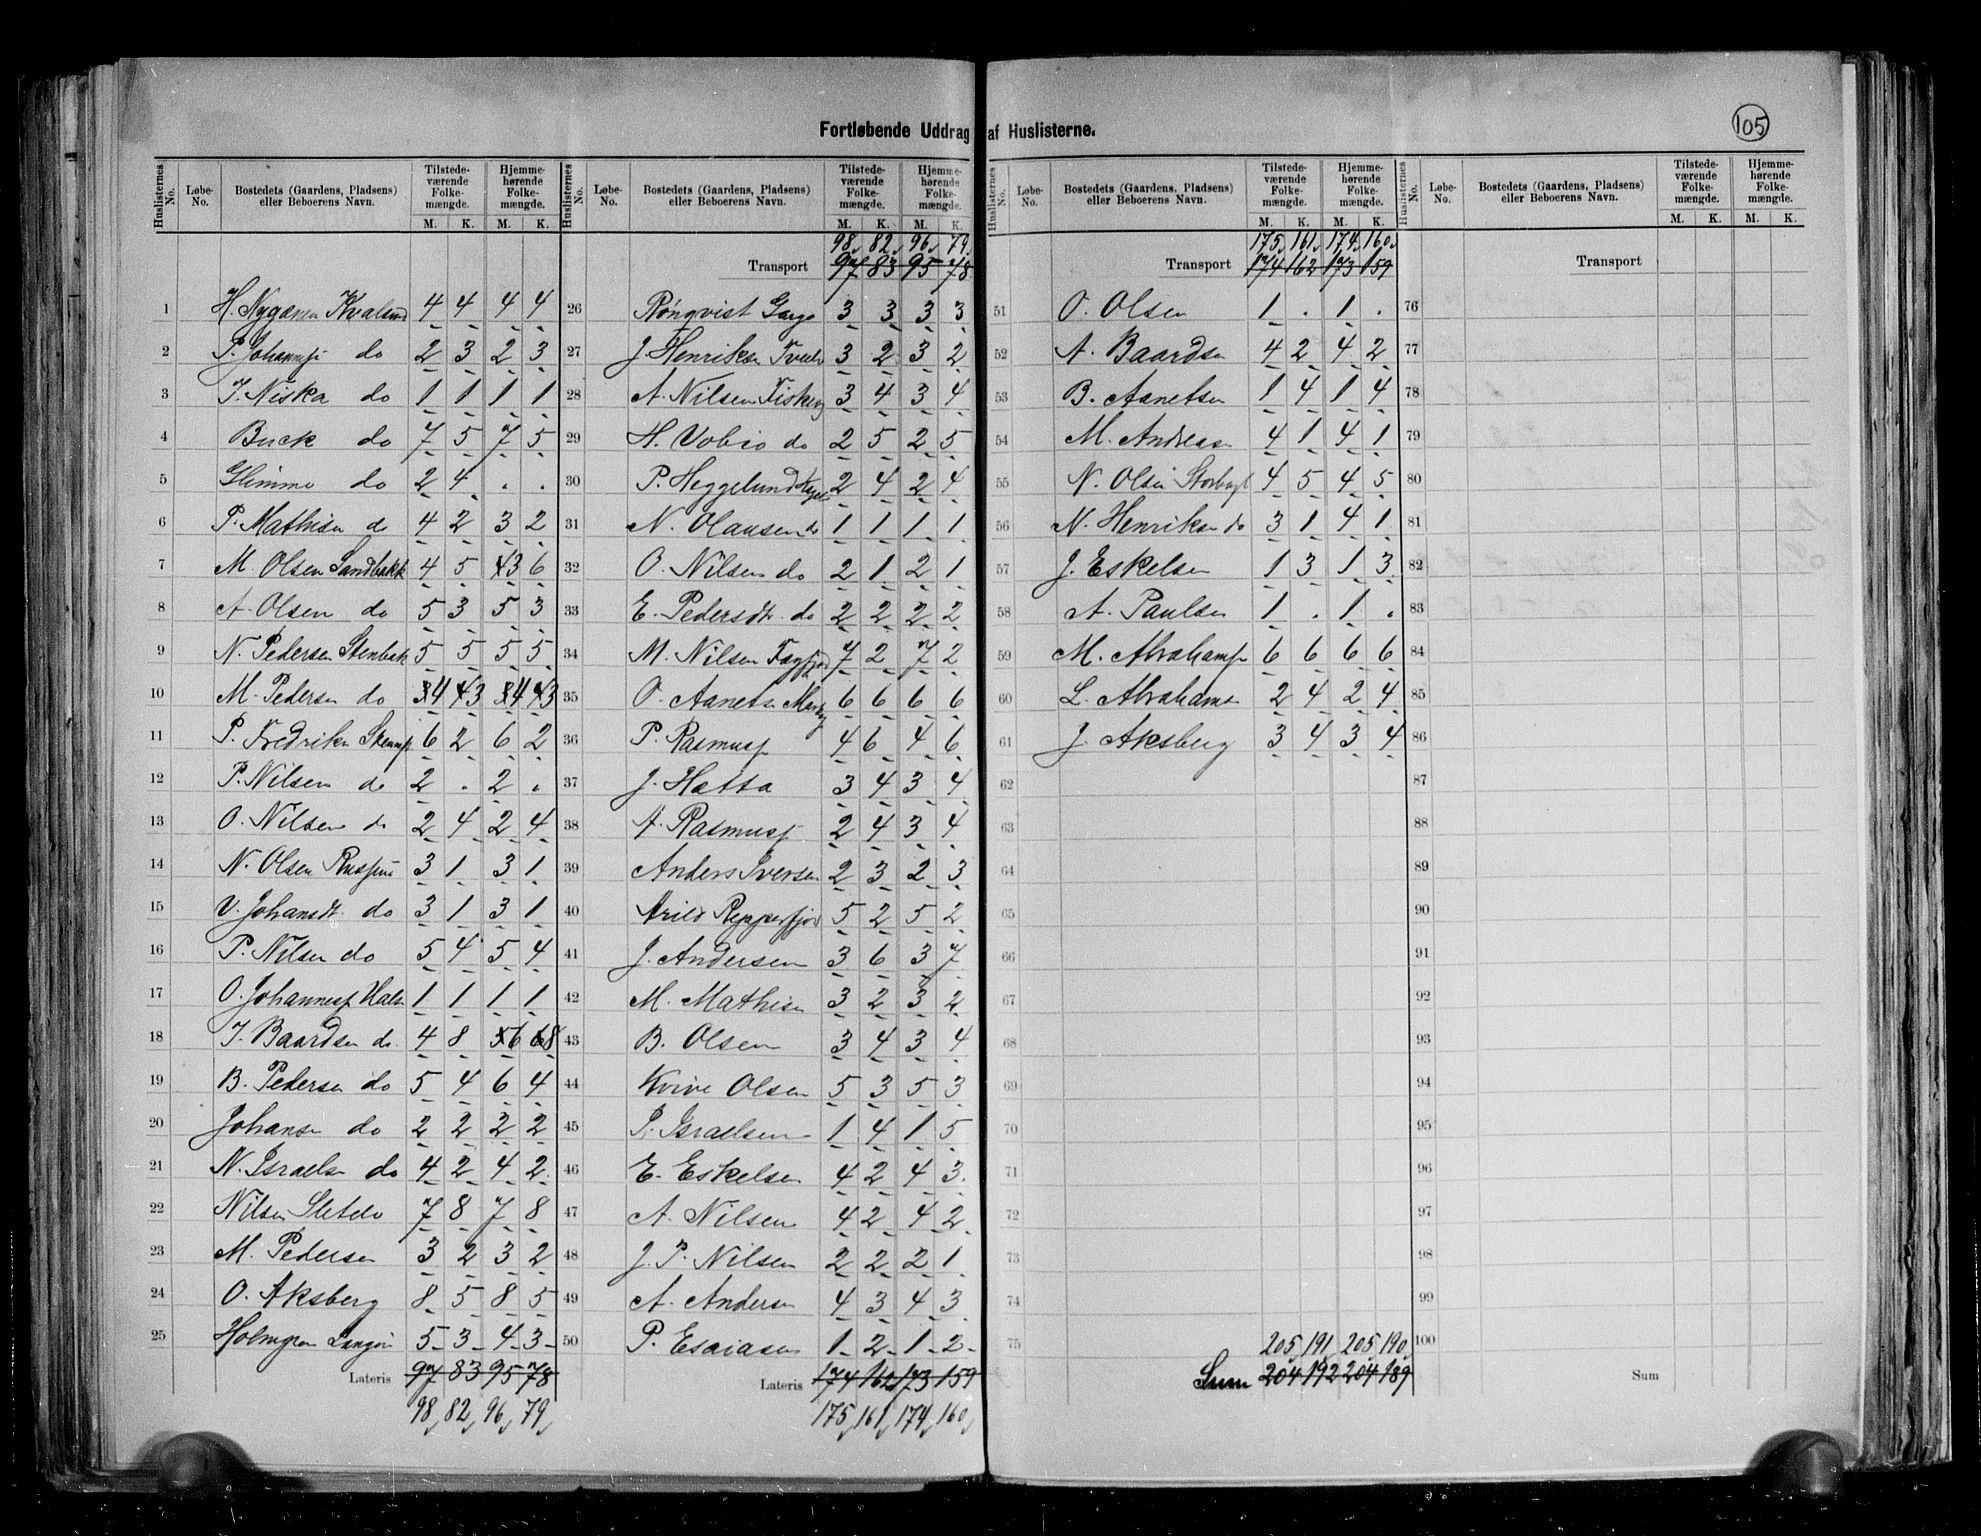 Fortløbende Uddrag af Huslisterne.
105
Huslisternes No. Løbe-No. Bostedets (Gaardens, Pladsens) eller Beboerens Navn. Tilstedeværende Folkemængde. M. K. Hjemmehørende Folkemængde. M. K.
1 H. Nygaren Kvalsund 4 4 4 4
2 P. Johannsf do 2 3 2 3
3 J. Niska do 1 1 1 1
4 Buck do 7 5 7 5
5 Glimme do 2 4 . .
6 P. Mathisen do 4 2 3 2
7 M. Olsen Sandbakk 4 5 3 6
8 A. Olsen do 5 3 5 3
9 N. Pedersen Stenbak 5 5 5 5
10 M. Pedersen do 4 3 4 3
11 P. Fredriksn 6 2 6 2
12 P. Nilsen do 2 . 2 .
13 O. Nilsen do 2 4 2 4
14 N. Olsen 3 1 3 1
15 V. Johansdt. do 3 1 3 1
16 P. Nilsen do 5 4 5 4
17 O. Johannesf Hals 1 1 1 1
18 J. Baardsen do. 4 8 6 8
19 B. Pedersen do 5 4 6 4
20 Johansn do 2 2 2 2
21 N. Israelsn do 4 2 4 2
22 Nilsen 7 8 7 8
23 M. Pedersen 3 2 3 2
24 O. Aksberg 8 5 8 5
25 Holmgren 5 3 4 3
Lateris 97 83 95 78
98 82 96 79
Huslisternes No. Løbe-No. Bostedets (Gaardens, Pladsens) eller Beboerens Navn. Tilstedeværende Folkemængde. M. K. Hjemmehørende Folkemængde. M. K.
98 82 96 79
Transport 97 83 95 78
26 Rönqvist 3 3 3 3
27 J. Henriksen 3 2 3 2
28 A. Nilsen 3 4 3 4
29 H. do 2 5 2 5
30 P. Heggelund 2 4 2 4
31 N. Olausen do 1 1 1 1
32 O. Nilsen do 2 1 2 1
33 E. Pedersdt. do 2 2 2 2
34 M. Nilsen Fægfjord 7 2 7 2
35 O. Aanetsn 6 6 6 6
36 P. Rasmusf 4 6 4 6
37 J. Hætta 3 4 3 4
38 A. Rasmusf 2 4 3 4
39 Anders Iversen 2 3 2 3
40 Arild Repperfjord 5 2 5 2
41 J. Andersen 3 6 3 7
42 M. Mathisen 3 2 3 2
43 B. Olsen 3 4 3 4
44 Kvive Olsen 5 3 5 3
45 P. Israelsen 1 4 1 5
46 E. Eskelsen 4 2 4 3
47 A. Nilsen 4 2 4 2
48 J. P. Nilsen 2 2 2 1
49 A. Andersn 4 3 4 3
50 P. Esaiasen 1 2 1 2
Lateris 174 162 173 159
175 161 174 160
Huslisternes No. Løbe-No. Bostedets (Gaardens, Pladsens) eller Beboerens Navn. Tilstedeværende Folkemængde. M. K. Hjemmehørende Folkemængde. M. K.
175 161 174 160
Transport 174 162 173 159
51 O. Olsen 1 . 1 .
52 A. Baardsen 4 2 4 2
53 B. Aanetsen 1 4 1 4
54 M. Andreasn 4 1 4 1
55 N. Olsen Storbugt 4 5 4 5
56 N. Henriksn do 3 1 4 1
57 J. Eskelsen 1 3 1 3
58 A. Paulsen 1 . 1 .
59 M. Abrahamsf 6 6 6 6
60 L. Abrahamsn 2 4 2 4
61 J. Aksberg 3 4 3 4
62
63
64
65
66
67
68
69
70
71
72
73
74
75 205 191 205 190
Sum 204 192 204 189
Huslisternes No. Løbe-No. Bostedets (Gaardens, Pladsens) eller Beboerens Navn. Tilstedeværende Folkemængde. M. K. Hjemmehørende Folkemængde. M. K.
Transport
76
77
78
79
80
81
82
83
84
85
86
87
88
89
90
91
92
93
94
95
96
97
98
99
100
Sum